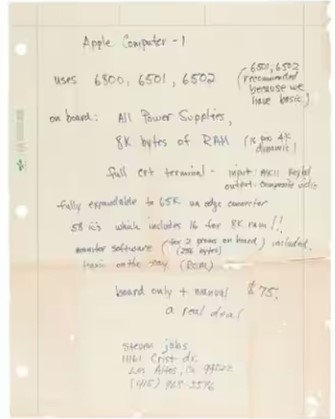 Apple Computer - 1
uses 6800, 6501, 6502 (6501, 6502 recommended because we have basic)
on board: All Power Supplies,
8K bytes of RAM (16 pin 4K dynamic)
full crt terminal - input: ASCII Keybd
output: composite video
fully expandable to 65K via edge connector
58 ic's which includes 16 for 8K ram!!
monitor software (for 2 proms on board) included.
(256 bytes)
basic on the way (ROM)
board only + manual $75.
a real deal
steven jobs
11161 Crist dr.
Los Altos, Ca
(415)